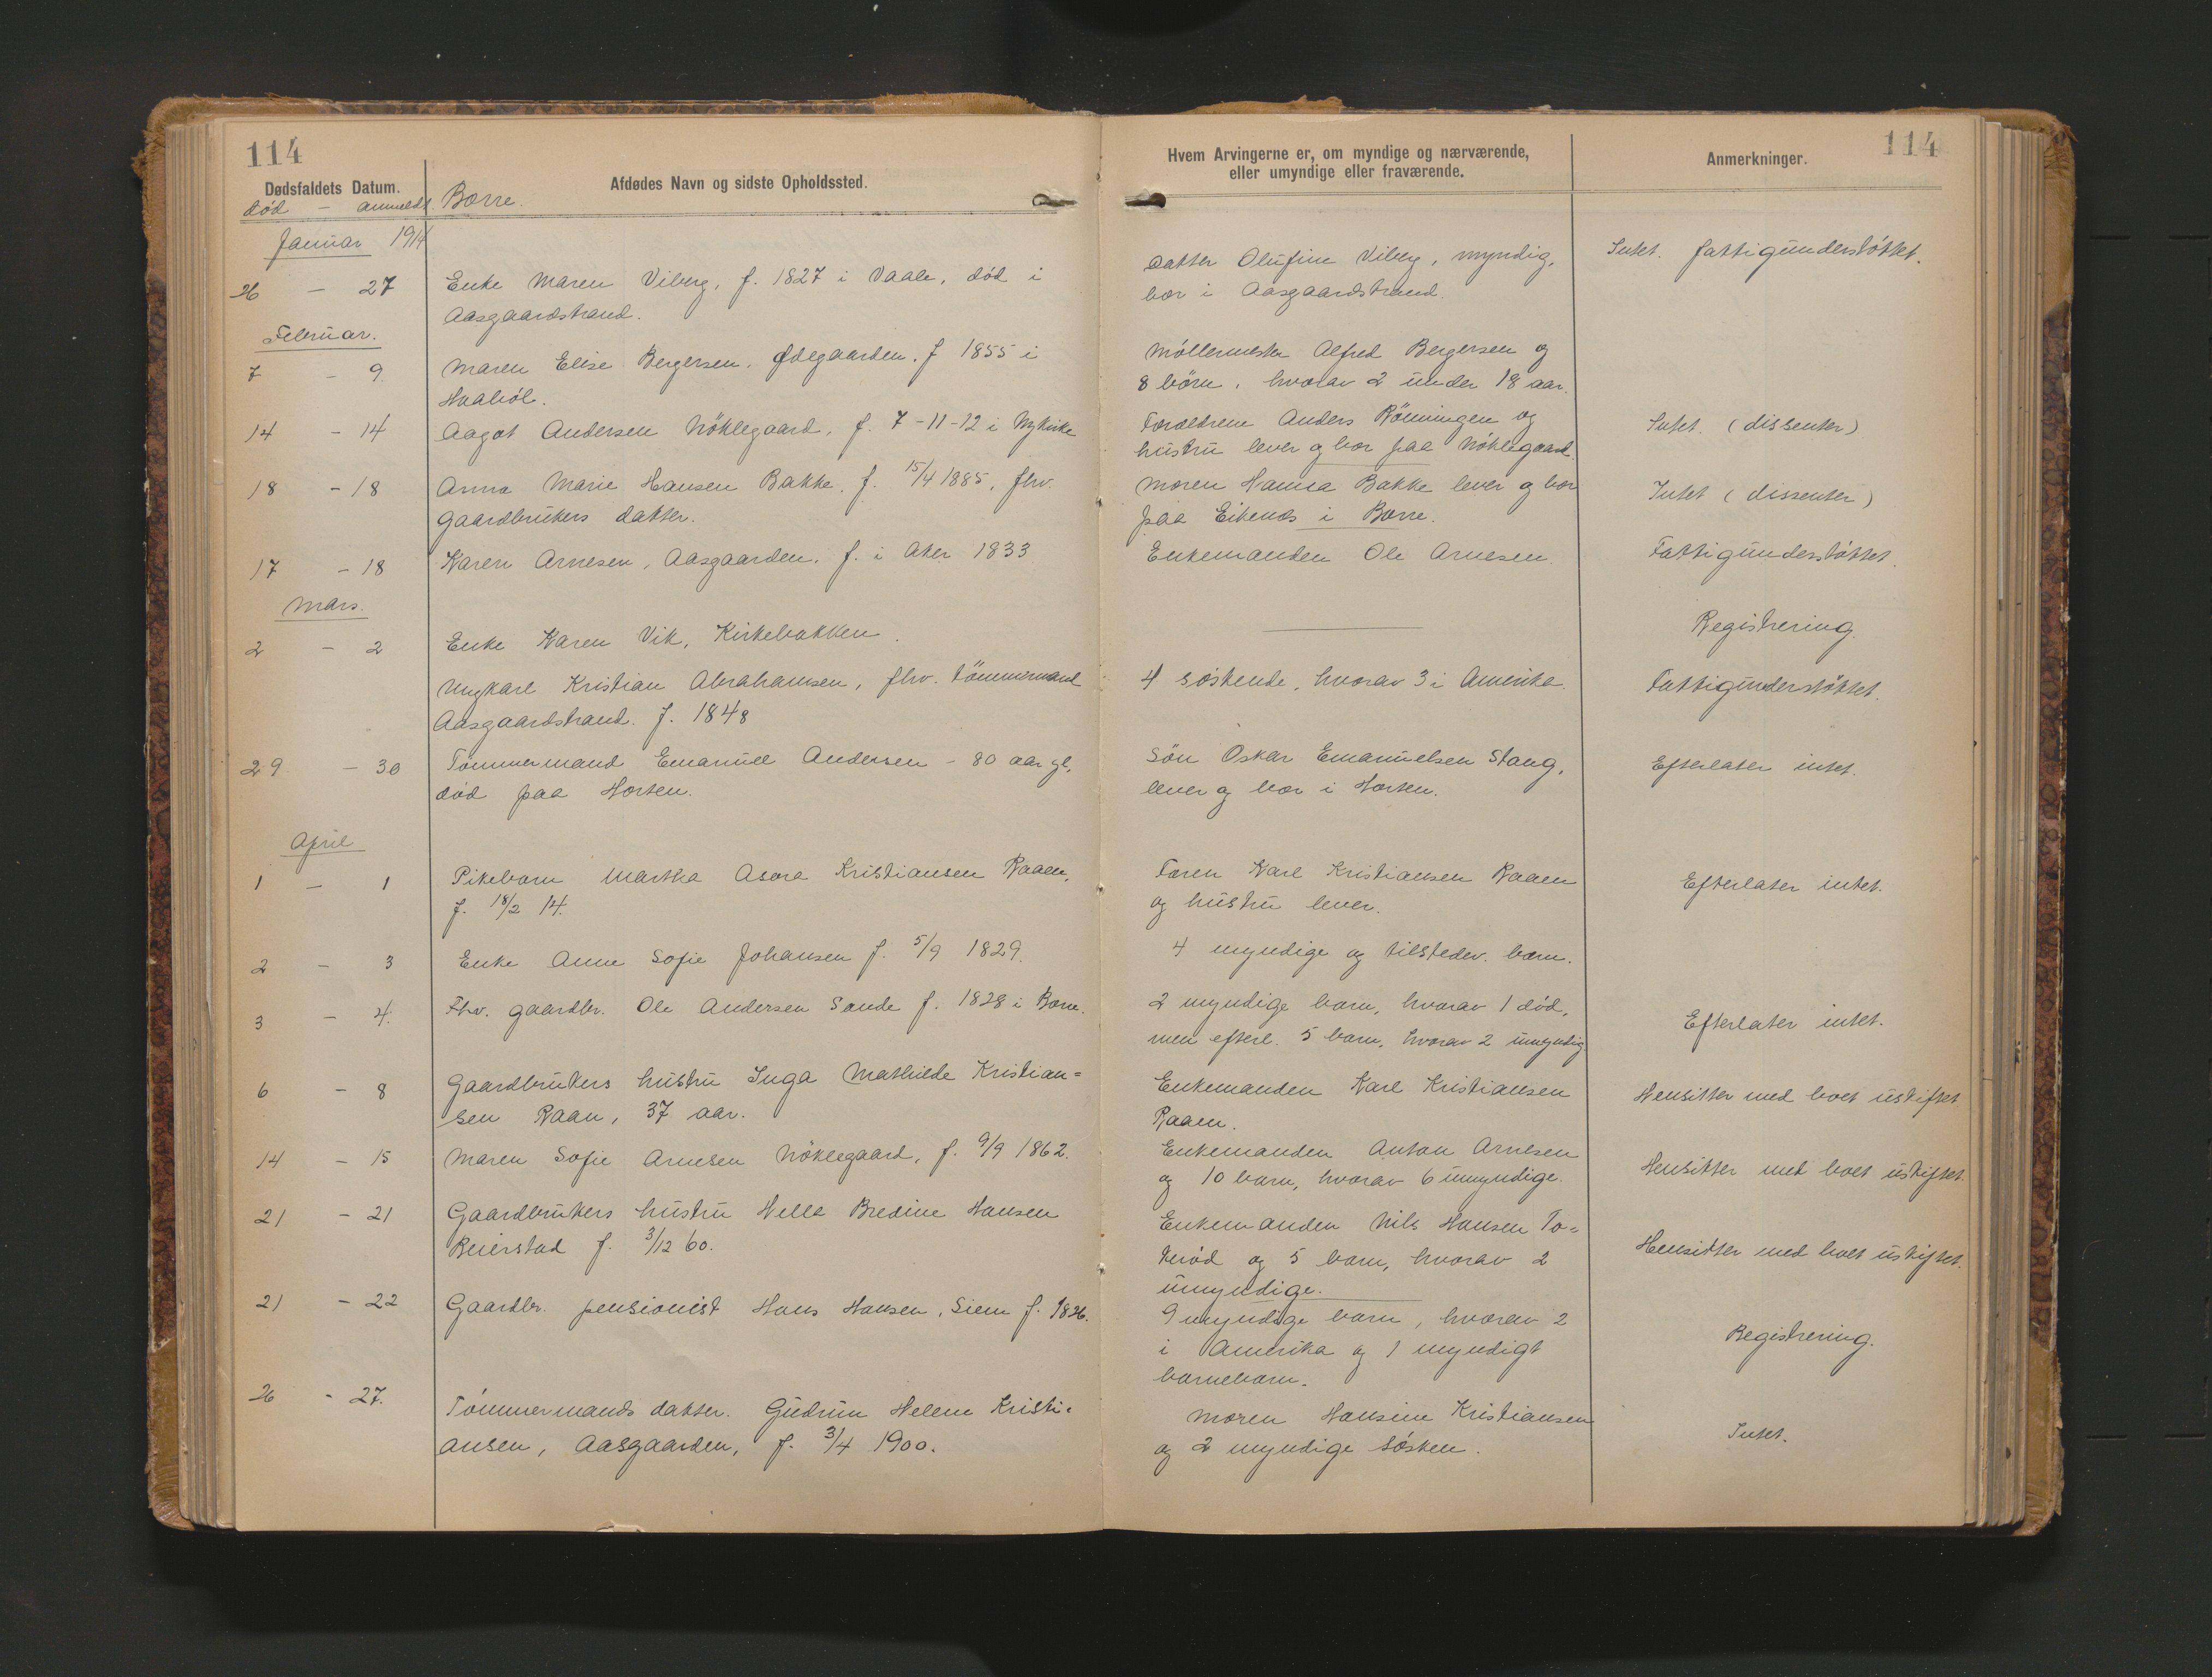 114
Dødsfaldets Datum.
Afdødes Navn og sidste Opholdssted.
død - anmeldt.
Borre.
Januar 1914
26 - 27
Enke Maren Viberg, f. 1827 i Vaale, død i
Aasgaardstrand.
Februar.
7 - 9
Maren Elise Bergersen, Ødegaarden. f 1855 i
Haabøl.
14 - 14
Aagot Andersen Nöklegaard, f. 7-11-12 i Nykirke
18 - 18
Anna Marie Hansen Bakke. f. 15/4 1885, fhv.
gaardbrukers datter.
17 - 18
Karen Arnesen, Aasgaarden. f. i Aker 1833
Mars.
2 - 2
Enke Karen Vik, Kirkebakken.
Ungkarl Kristian Abrahamsen, fhv. tömmermand
Aasgaardstrand. f. 1848
29 - 30
Tömmermand Emanuel Andersen - 80 aar gl,
død paa Horten.
April
1 - 1
Pikebarn Martha Asora Kristiansen Raaen,
f. 18/2 14.
2 - 3
Enke Anne Sofie Johansen f. 5/9 1829.
3 - 4.
Fhv. gaardbr. Ole Andersen Sande f. 1828 i Borre.
6 - 8
Gaardbrukers hustru Inga Mathilde Kristian=
sen Raan, 37 aar.
14 - 15
Maren Sofie Arnesen Nöklegaard, f. 9/9 1862.
21 - 21
Gaardbrukers hustru Helle Bredine Hansen
Reierstad f. 3/12 60.
21 - 22
Gaardbr. pensionist Hans Hansen, Siem f. 1826.
26 - 27.
Tömmermands datter. Gudrun Helene Kristi=
ansen, Aasgaarden, f. 3/4 1900.
114
Hvem Arvingerne er, om myndige og nærværende,
eller umyndige eller fraværende.
Anmerkninger.
Datter Olufine Viberg, myndig,
bor i Aasgaardstrand.
Intet. fattigunderstøttet.
Möllermester Alfred Bergersen og
8 börn, hvorav 2 under 18 aar.
Forældrene Anders Rönningen og
hustru lever og bor paa Nöklegaard.
Intet. (dissenter)
Moren Hanna Bakke lever og bor
paa Eikenæs i Borre.
Intet (dissenter)
Enkemanden Ole Arnesen.
Fattigunderstøttet.
Registrering.
4 søskende, hvorav 3 i Amerika.
Fattigunderstøttet.
Sön Oskar Emanuelsen Stang,
lever og bor i Horten.
Efterlater intet.
Faren Karl Kristiansen Raaen
og hustru lever.
Efterlater intet.
4 myndige og tilstedev. barn.
2 myndige barn, hvorav 1 død,
men efterl. 5 barn, hvorav 2 umyndig
Efterlater intet.
Enkemanden Karl Kristiansen
Raaen.
Hensitter med boet uskiftet
Enkemanden Anton Arnesen
og 10 barn, hvorav 6 umyndige.
Hensitter med boet uskiftet.
Enkemanden Nils Hansen To=
kerød og 5 barn, hvorav 2
umyndige.
Hensitter med boet uskiftet.
9 myndige barn, hvorav 2
i Amerika og 1 myndigt
barnebarn.
Registrering.
Moren Hansine Kristiansen
og 2 myndige søsken.
Intet.